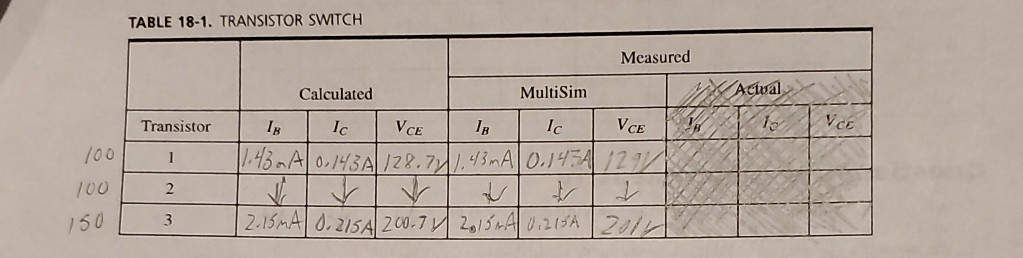 TABLE 18-1. TRANSISTOR SWITCH
Measured
Calculated MultiSim Actual
Transistor IB IC VCE IB IC VCE IB IC VCE
100 1 1.43mA 0.143A 128.7V 1.43mA 0.143A 129V
100 2 ↓ ↓ ↓ ↓ ↓ ↓
150 3 2.15mA 0.215A 200.7V 2.15mA 0.215A 201V